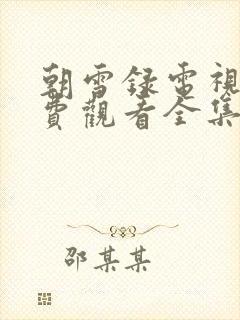 朝雪録電視
費觀看全集
邵某某